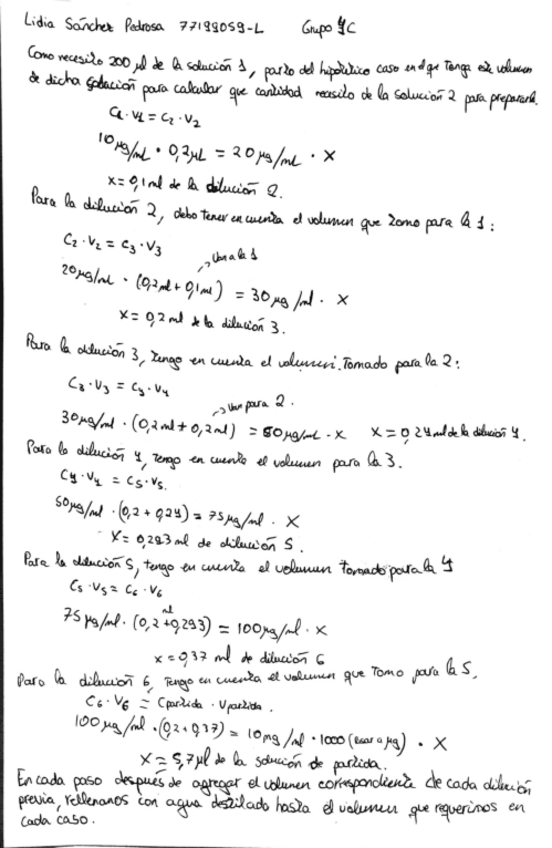 Lidia Sánchez Pedrosa 77199059-L Grupo 4C
Como necesito 200 µl de la solución 1, parto del hipotético caso en el que tenga este volumen
de dicha solución para calcular que cantidad necesito de la solución 2 para prepararla.
C1 · V1 = C2 · V2
10 µg/mL · 0,2 µL = 20 µg/mL · X
X = 0,1 ml de la dilución 2.
Para la dilución 2, debo tener en cuenta el volumen que tomo para la 1:
C2 · V2 = C3 · V3
→ Van a la 1
20 µg/ml · (0,2 ml + 0,1 ml) = 30 µg/ml · X
X = 0,2 ml de la dilución 3.
Para la dilución 3, tengo en cuenta el volumen tomado para la 2:
C3 · V3 = C4 · V4
→ Van para 2.
30 µg/ml · (0,2 ml + 0,2 ml) = 50 µg/mL · X X = 0,24 ml de la dilución 4.
Para la dilución 4, tengo en cuenta el volumen para la 3.
C4 · V4 = C5 · V5.
50 µg/ml · (0,2 + 0,24) = 75 µg/ml · X
X = 0,293 ml de dilución 5.
Para la dilución 5, tengo en cuenta el volumen tomado para la 4
C5 · V5 = C6 · V6
75 µg/ml · (0,2 ml + 0,293) = 100 µg/ml · X
X = 0,37 ml de dilución 6
Para la dilución 6, tengo en cuenta el volumen que tomo para la 5.
C6 · V6 = Cpartida · Vpartida.
100 µg/ml · (0,2 + 0,37) = 10 mg/ml · 1000 (pasar a µg) · X
X = 5,7 µl de la solución de partida.
En cada paso después de agregar el volumen correspondiente de cada dilución
previa, rellenamos con agua destilada hasta el volumen que requerimos en
cada caso.